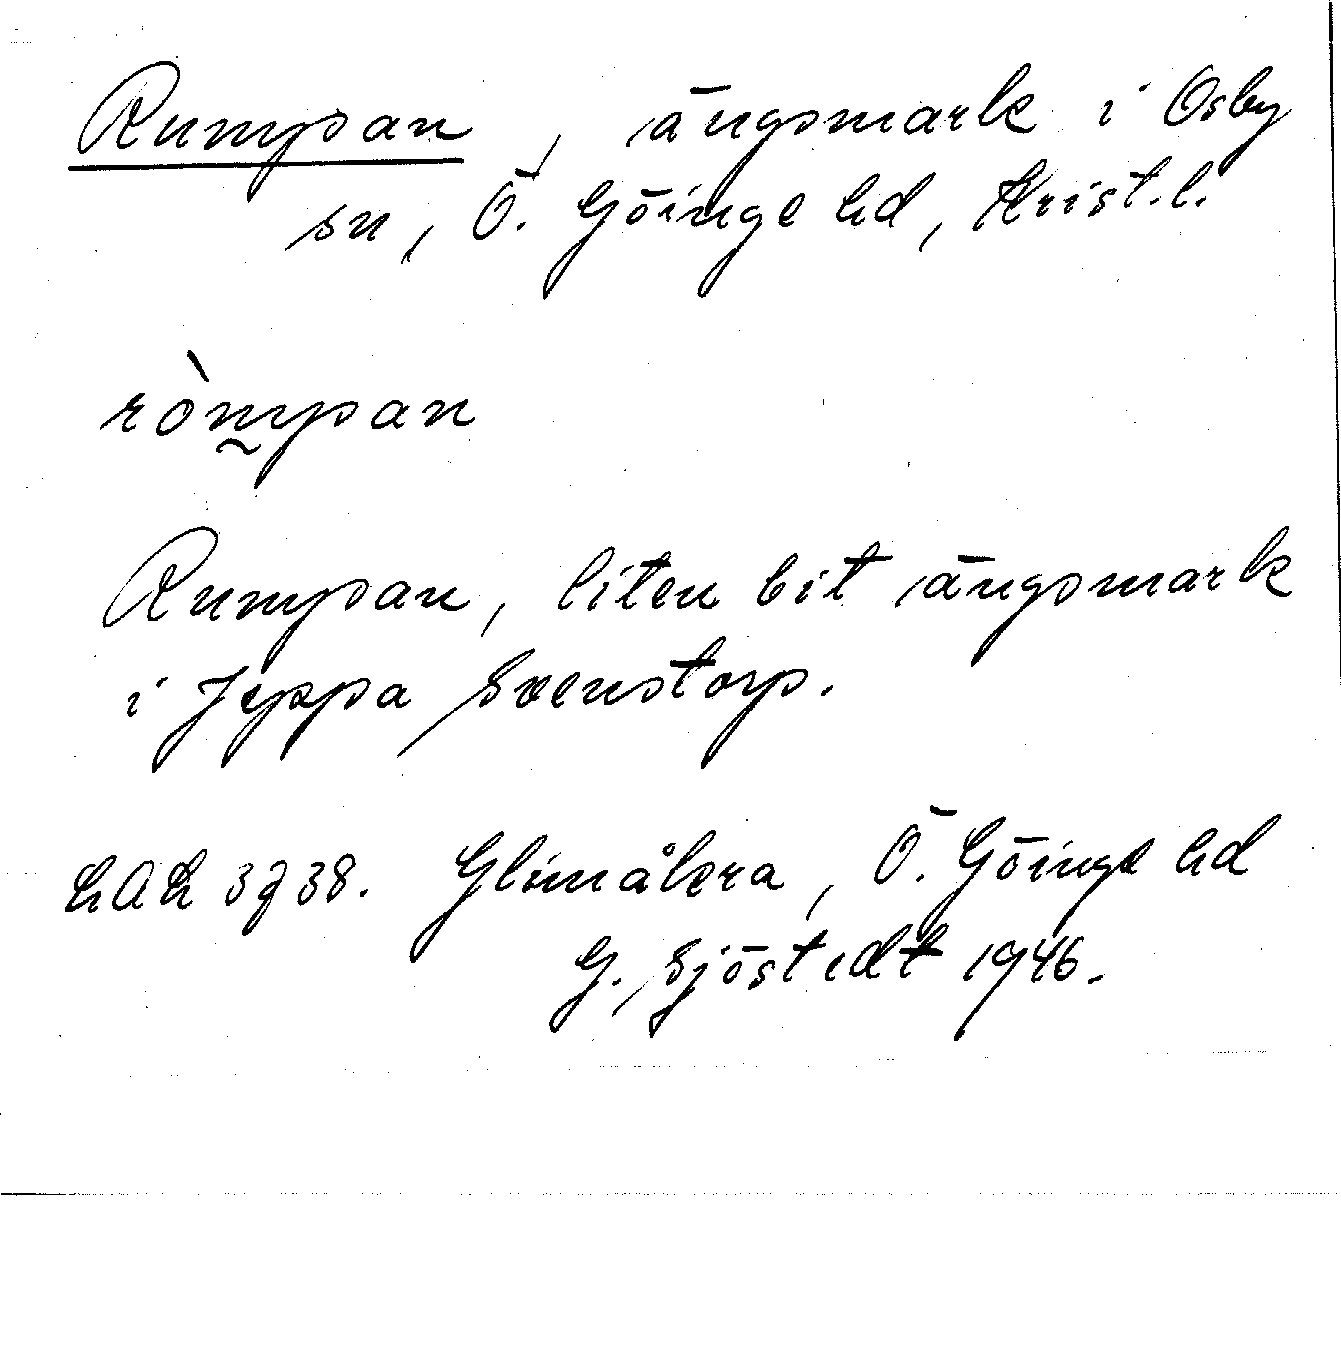 Rumpan, ängsmark i Osby
sn, Ö. Göinge hd, Krist.l.
ròm̰pan
Rumpan, liten bit ängsmark
i Jeppa Svenstorp.
LAL 3738. Glimåkra, Ö. Göinge hd
G. Sjöstedt 1946.